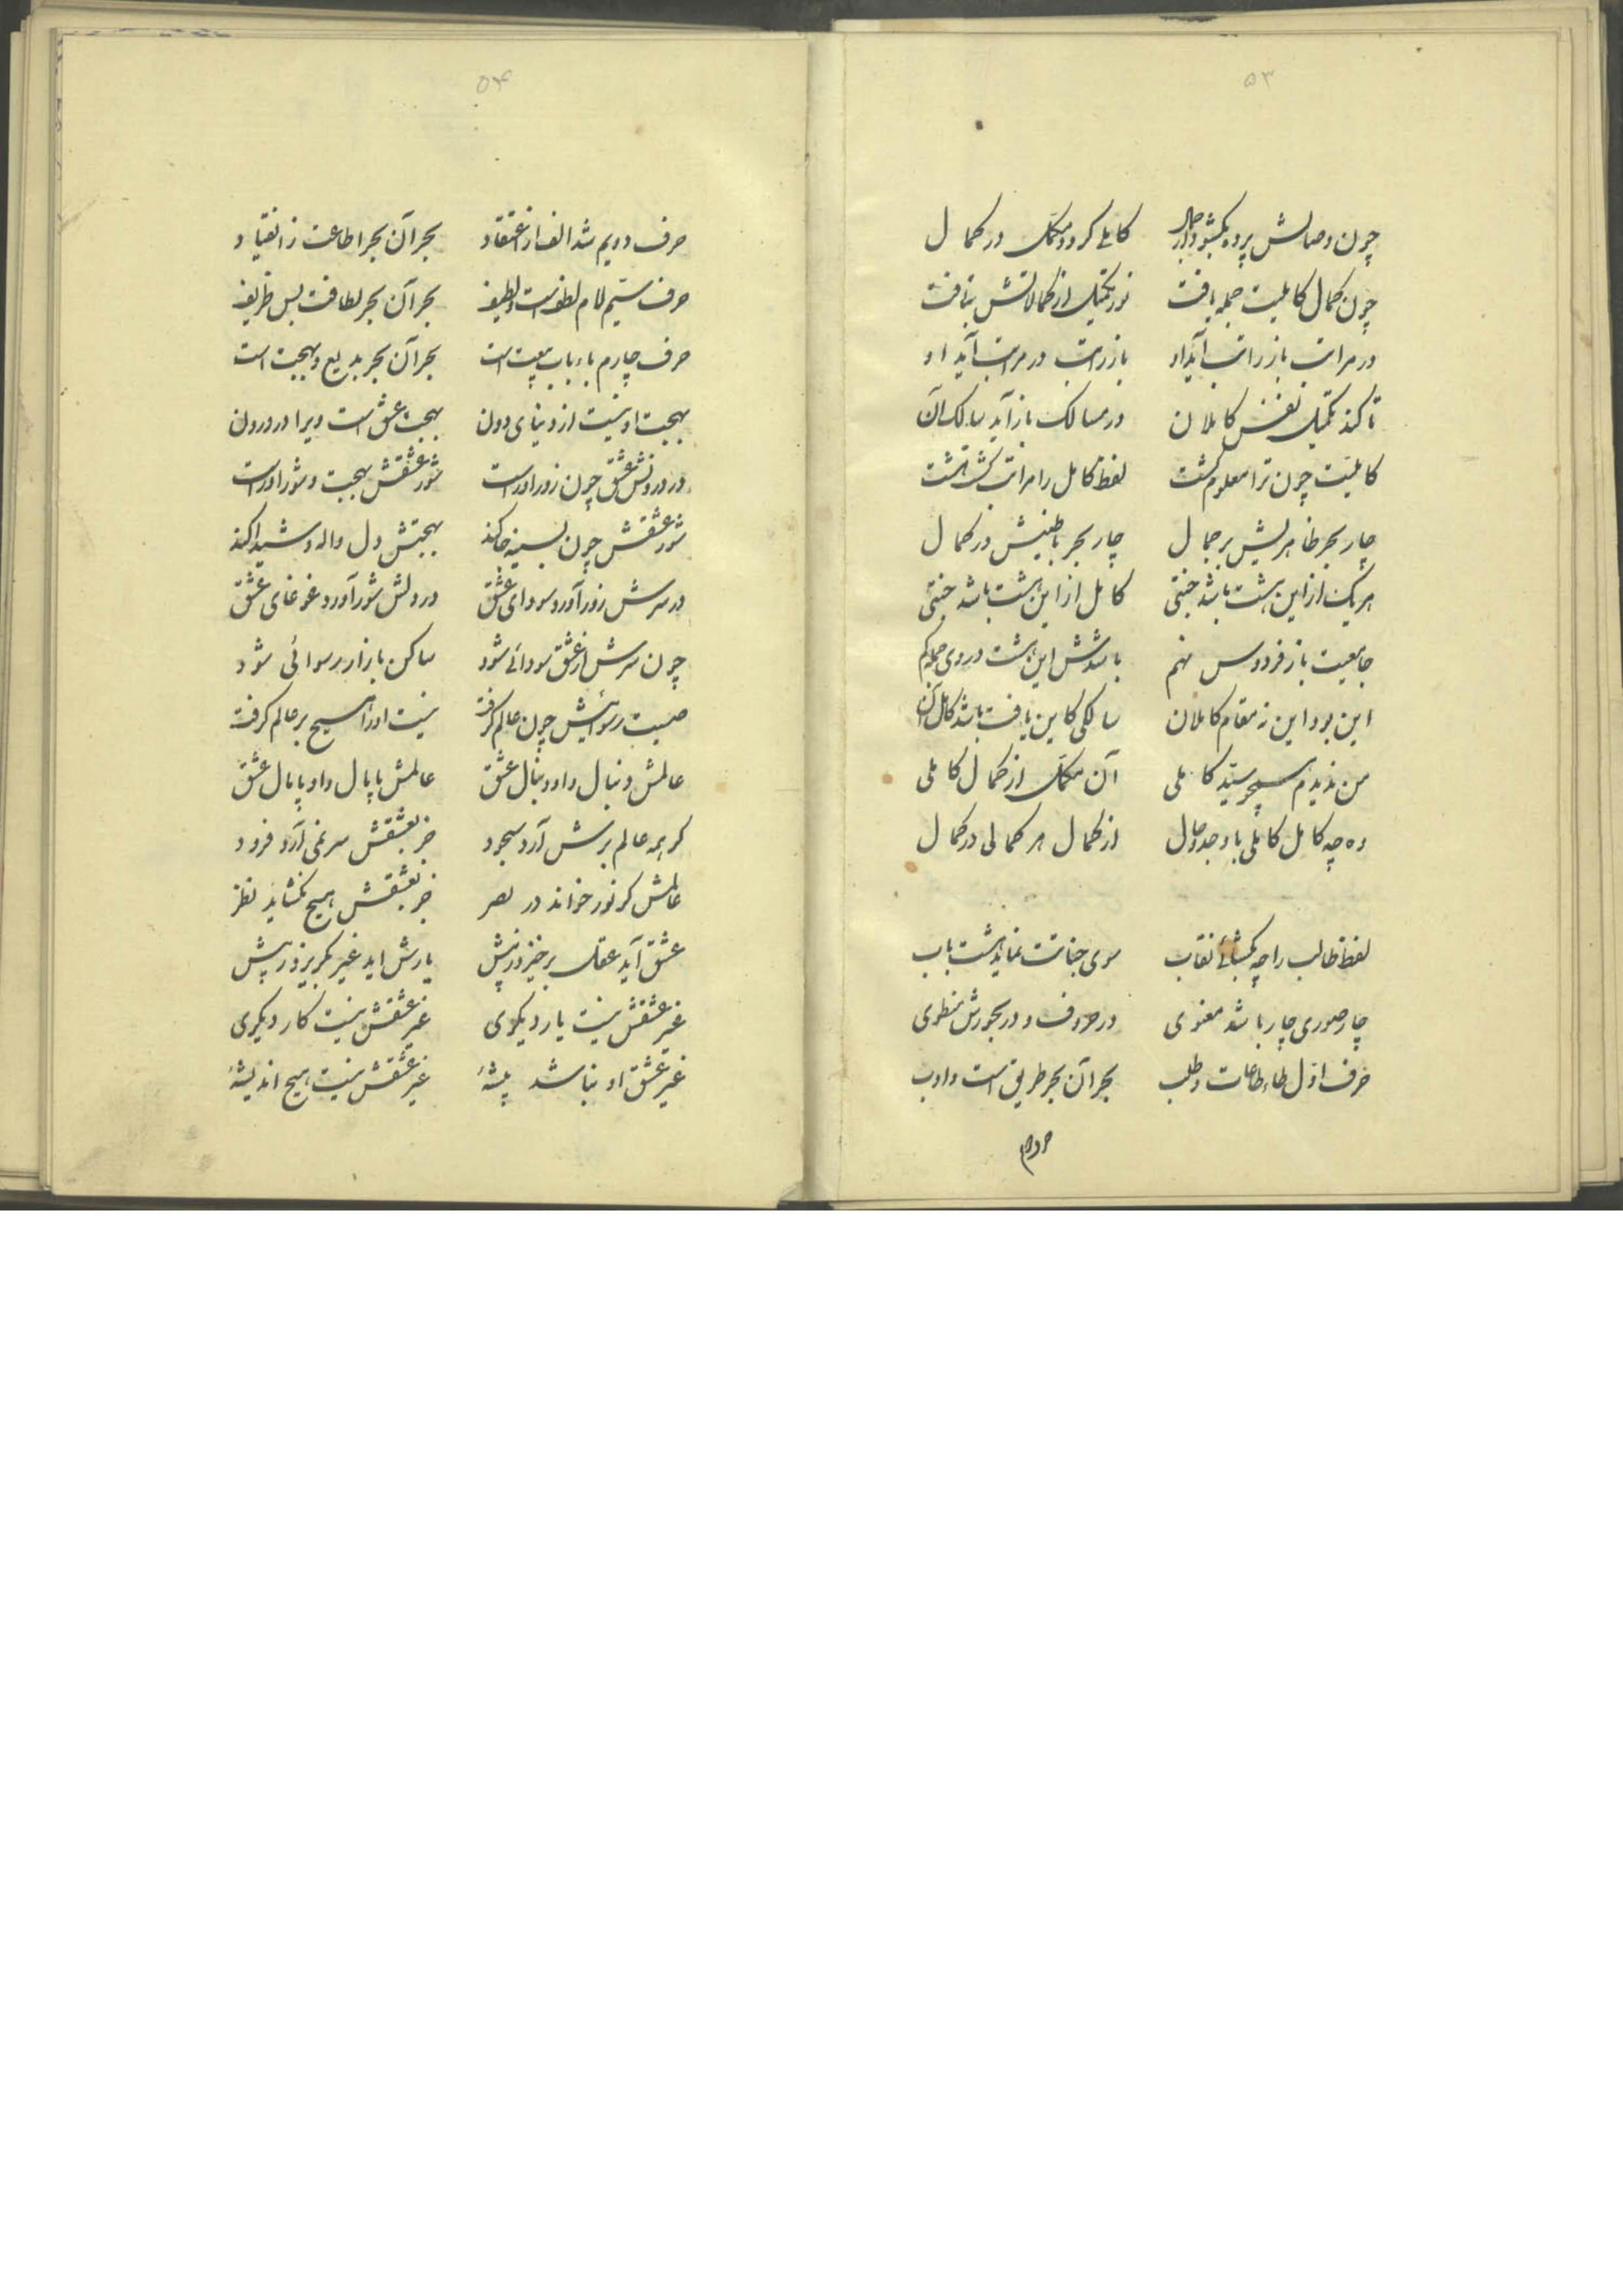 ۵۳
چون وصالش پرده بگشود از جمال کاملی گردد مکمل در کمال
چون کمال کاملیت جمله یافت نور تکمیل از کمالاتش بتافت
در مراتب باز راتب آید او باز راتب در مراتب آید او
تا کند تکمیل نفس کاملان در مسالک باز آید سالک آن
کاملیت چون ترا معلوم گشت لفظ کامل را مراتب گشت هشت
چار بحر ظاهریش بر جمال چار بحر باطنیش در کمال
هر یک از این هشت باشد جنتی کامل از این هشت باشد جنتی
جامعیت باز فردوس نهم باشدش این هشت در وی جمله گم
این بود این نه مقام کاملان سالکی کاین یافت باشد کامل آن
من ندیدم همچو سید کاملی آن مکمل از کمال کاملی
وه چه کامل کاملی با وجد و حال از کمال هر کمالی در کمال
لفظ طالب را چه بگشائی نقاب سوی جنانت نماید هشت باب
چار صوری چار باشد معنوی در حروف و در بحورش منطوی
حرف اول طاء طاعات و طلب بحر آن بحر طریق است و ادب
حرف دویم
۵۴
حرف دویم شد الف از اعتقاد بحر آن بحر اطاعت ز انقیاد
حرف سیم لام لطف است و لطیف بحر آن بحر لطافت بس ظریف
حرف چارم باء باب بیعت است بحر آن بحر بدیع و بهجت است
بهجت او نیست از دنیای دون بهجت عشق است ویرا در درون
در درونش عشق چون زورآور است شور عشقش بهجت و شورآور است
شور عشقش چون بسینه جا کند بهجتش دل واله و شیدا کند
در سرش زور آورد سودای عشق در دلش شور آورد غوغای عشق
چون سرش از عشق سودائی شود ساکن بازار رسوائی شود
صیت رسوائیش چون عالم گرفت نیست او را هیچ بر عالم گرفت
عالمش دنبال و او دنبال عشق عالمش پامال و او پامال عشق
گر همه عالم برش آرد سجود جز بعشقش سر نمی آرد فرود
عالمش گر نور خواند در بصر جز بعشقش هیچ نگشاید نظر
عشق آید عقل برخیزد ز پیش یارش اید غیر بگریزد ز پیش
غیر عشقش نیست یار دیگری غیر عشقش نیست کار دیگری
غیر عشق او نباشد پیشهٔ غیر عشقش نیست هیچ اندیشهٔ